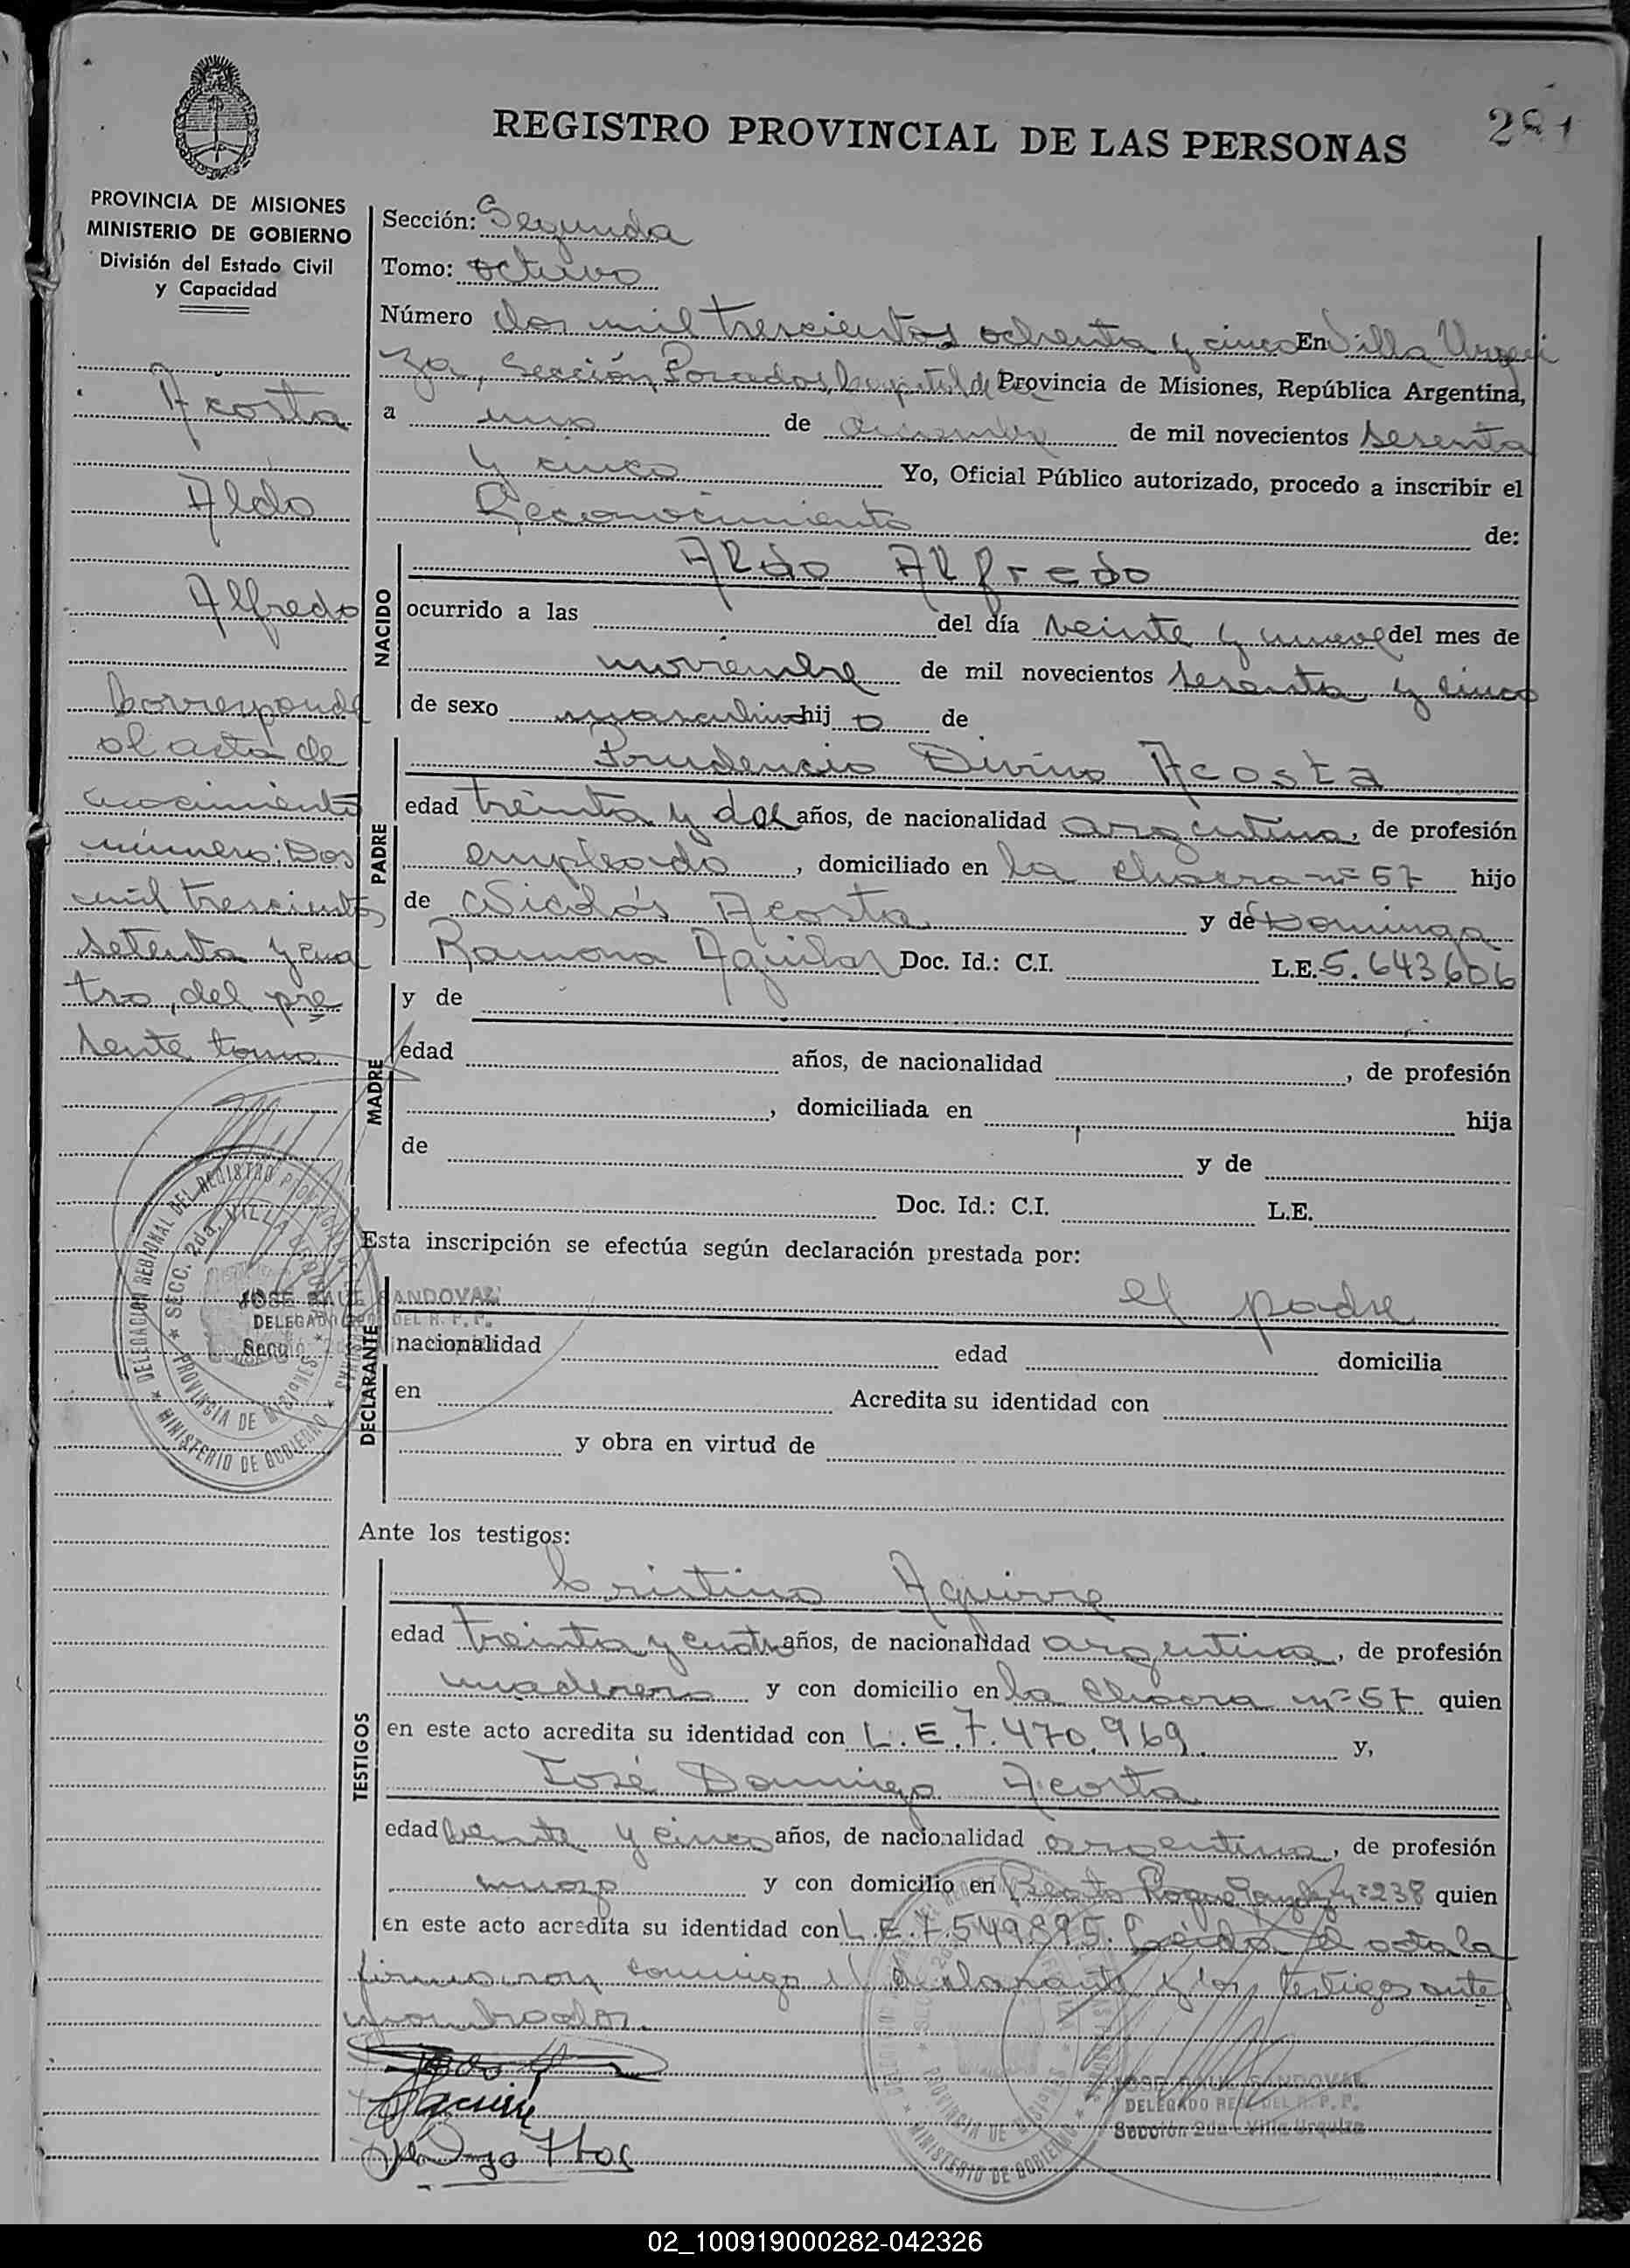 281
REGISTRO PROVINCIAL DE LAS PERSONAS
PROVINCIA DE MISIONES
MINISTERIO DE GOBIERNO
División del Estado Civil
y Capacidad
Acosta
Aldo
Alfredo
Corresponde
al acta de
nacimiento
número: Dos
mil trescientos
setenta y cua
tro, del pre
sente tomo.
Sección: Segunda
Tomo: octavo
Número dos mil trescientos ochenta y cinco En Villa Urqui
za, Sección, Posadas, capital de Provincia de Misiones, República Argentina,
a uno de diciembre de mil novecientos sesenta
y cinco Yo, Oficial Público autorizado, procedo a inscribir el
Reconocimiento de:
NACIDO
Aldo Alfredo
ocurrido a las del día veinte y nueve del mes de
noviembre de mil novecientos sesenta y cinco
de sexo masculino hij o de
PADRE
Prudencio Divino Acosta
edad treinta y dos años, de nacionalidad argentina, de profesión
empleado, domiciliado en la chacra nº 57 hijo
de Nicolás Acosta y de Dominga
Ramona Aguilar Doc. Id.: C.I. L.E. 5.643606
MADRE
y de
edad años, de nacionalidad , de profesión
, domiciliada en hija
de y de
Doc. Id.: C.I. L.E.
Esta inscripción se efectúa según declaración prestada por:
DECLARANTE
el padre
nacionalidad edad domicilia
en Acredita su identidad con
y obra en virtud de
DELEGACION REGIONAL DEL REGISTRO
SECC. 2da. VILLA
PROVINCIA DE MISIONES
MINISTERIO DE GOBIERNO
JOSE RAUL SANDOVAL
DELEGADO REG. DEL R. P. P.
Ante los testigos:
TESTIGOS
Cristino Aguirre
edad treinta y cuatro años, de nacionalidad argentina, de profesión
maderero y con domicilio en la chacra nº 57 quien
en este acto acredita su identidad con L.E. 7.470.969. y,
José Domingo Acosta
edad veinte y cinco años, de nacionalidad argentina, de profesión
y con domicilio en Beato Roque nº 238 quien
en este acto acredita su identidad con L.E. 7.549.895. Leída el acta la
firmaron conmigo el declarante y los testigos ante
nombrados.
PROVINCIA DE MISIONES
MINISTERIO DE GOBIERNO
JOSE RAUL SANDOVAL
DELEGADO REG. DEL R. P. P.
Sección 2da. Villa Urquiza
02_100919000282-042326